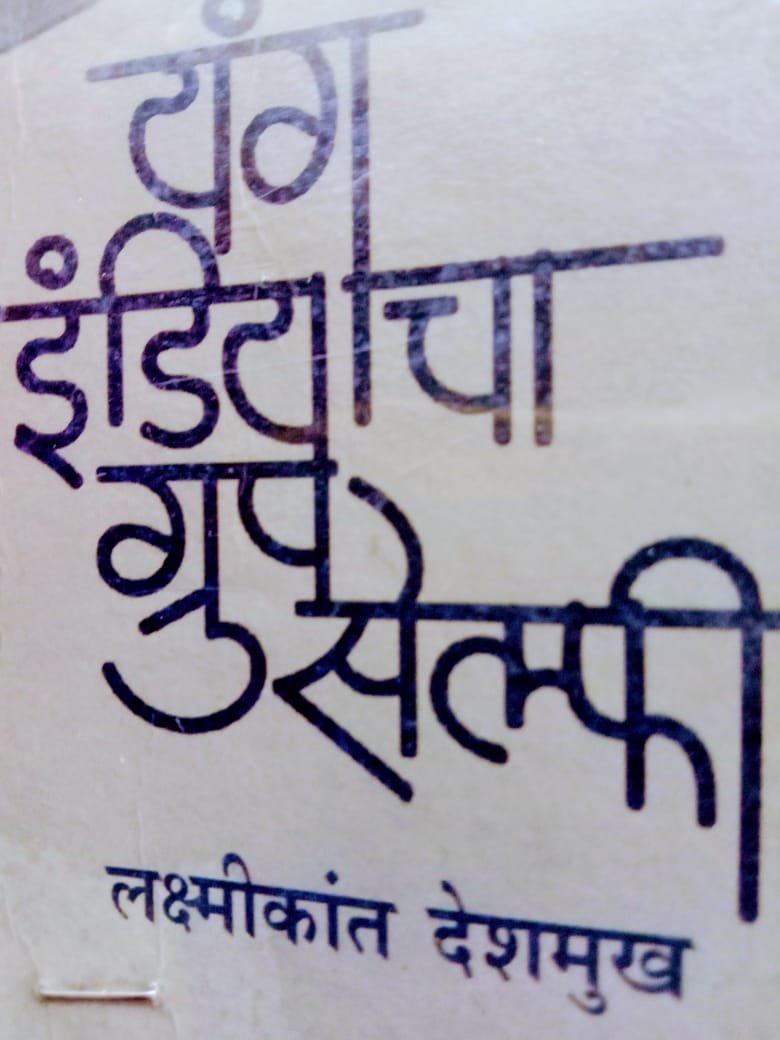 यंग
इंडियाचा
ग्रुप
सेल्फी
लक्ष्मीकांत देशमुख